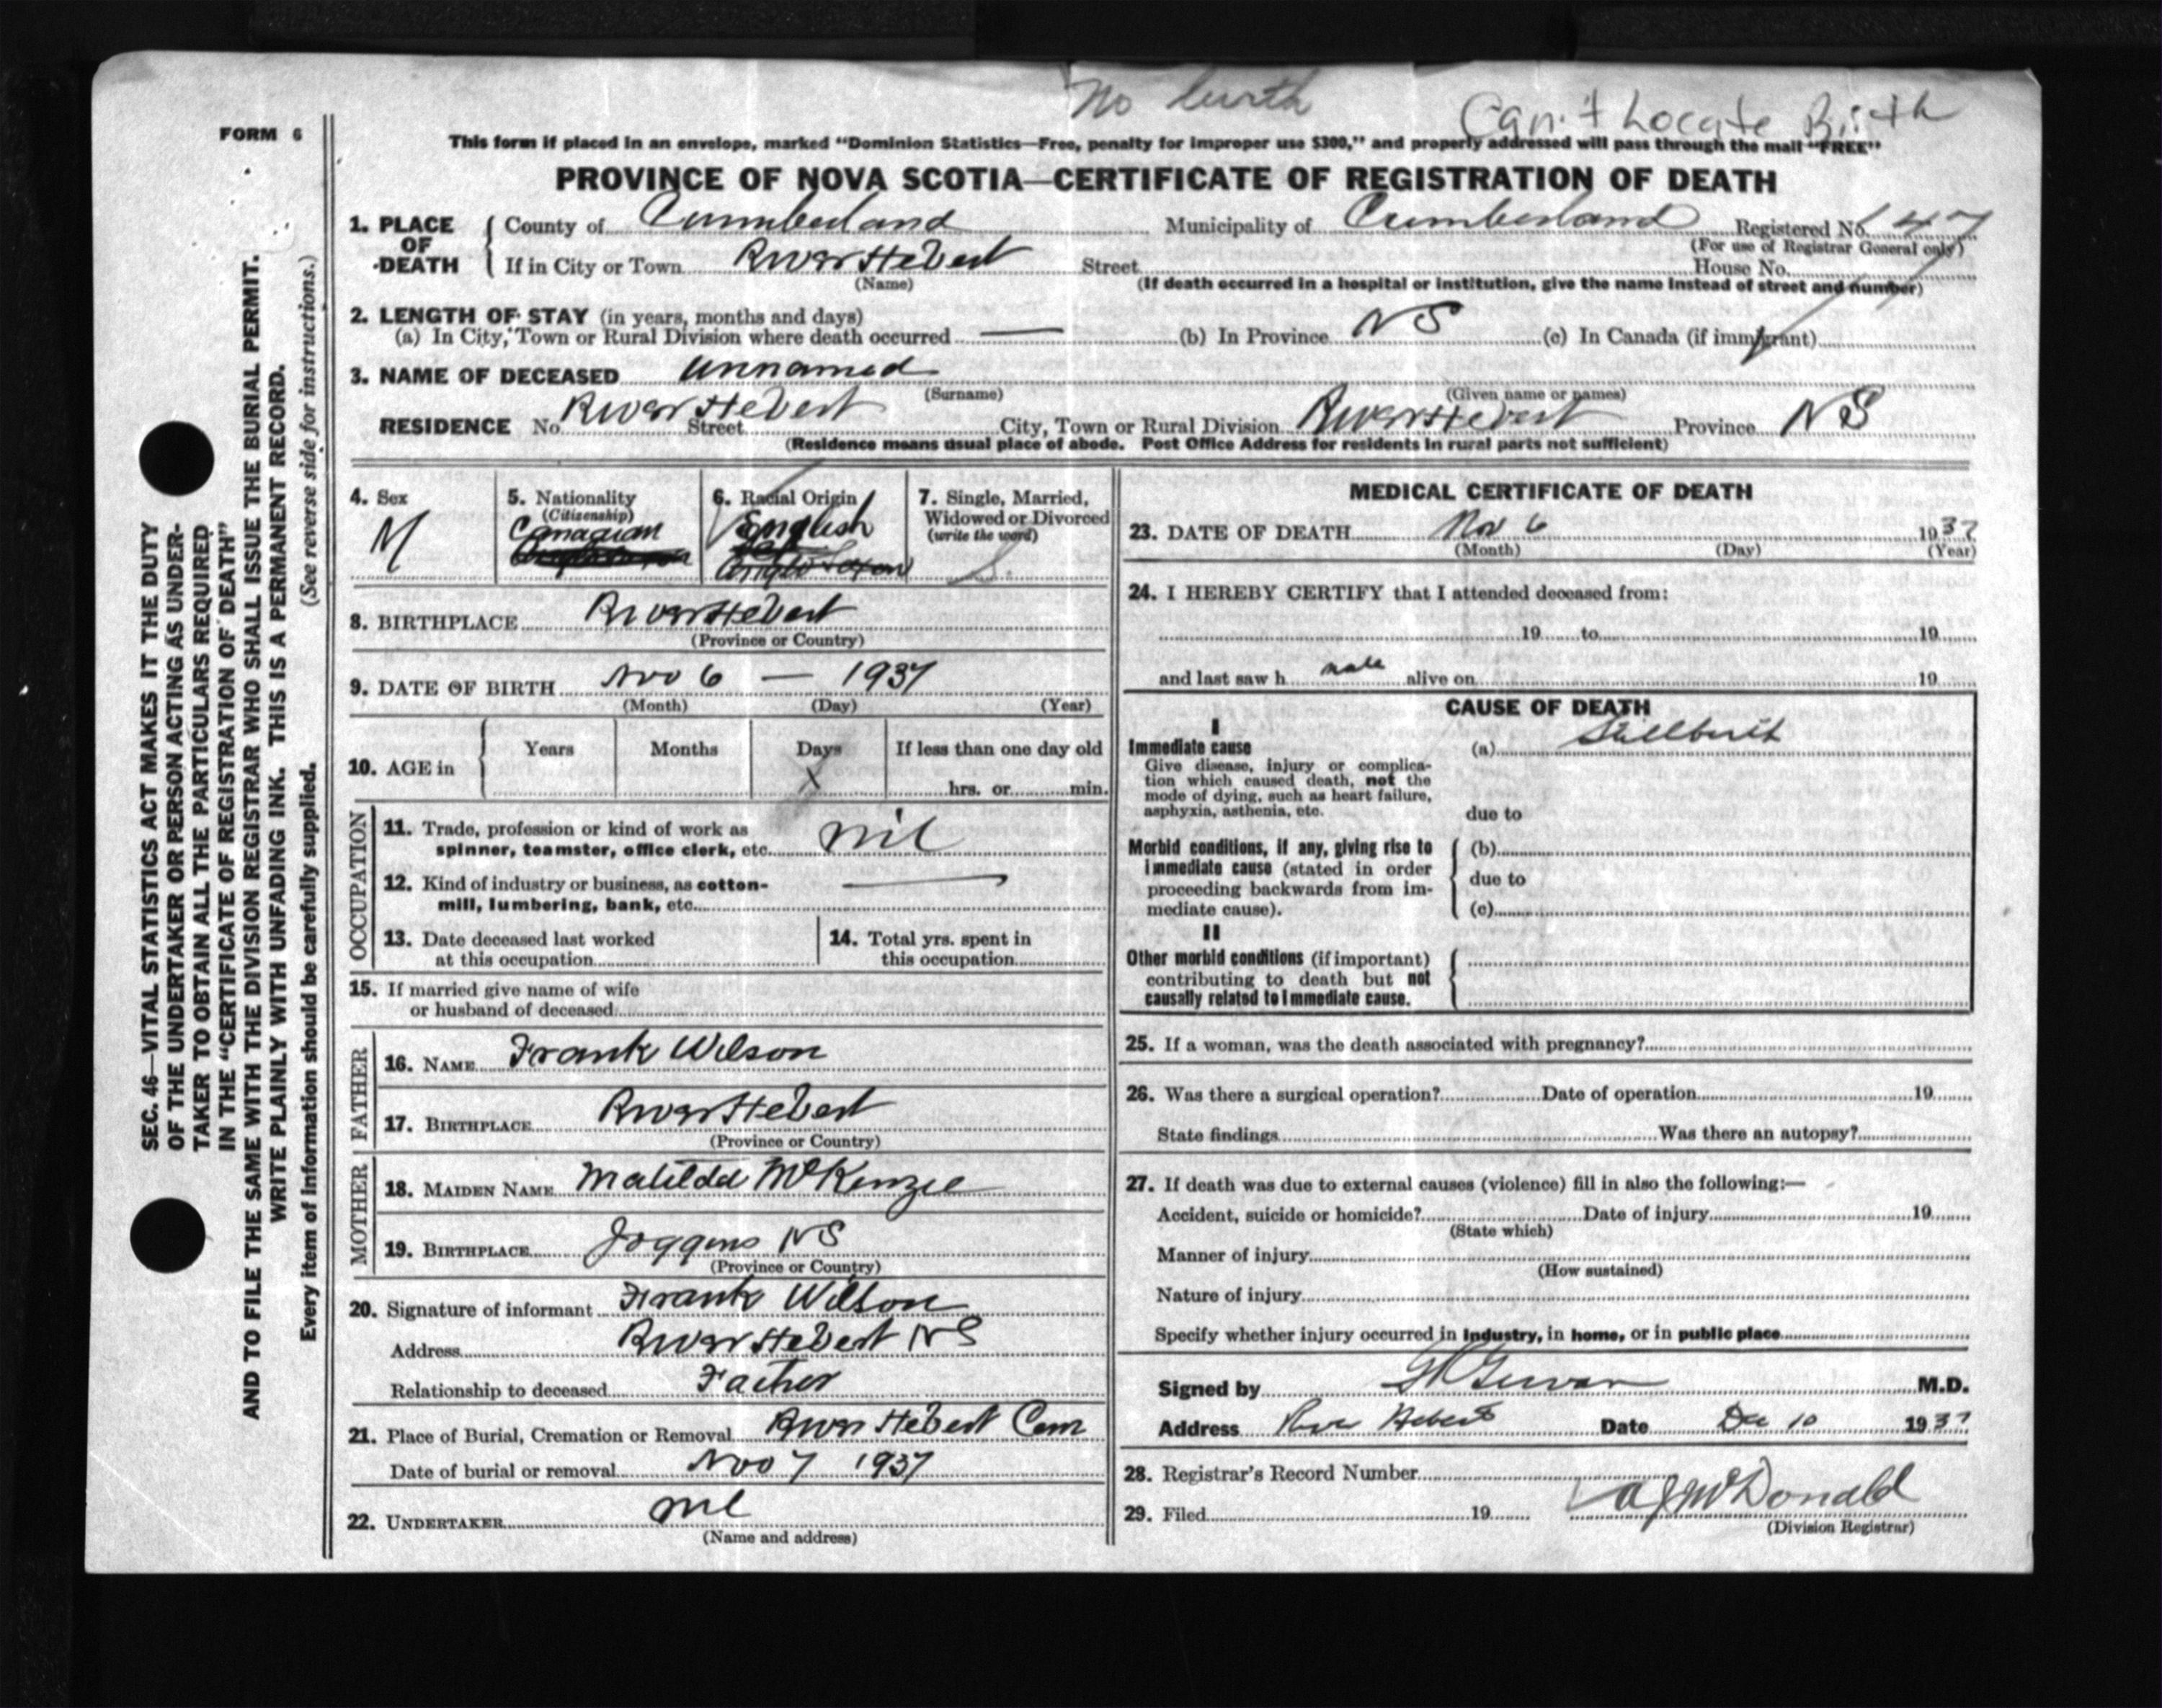 No birth
Can't Locate Birth
FORM 6
This form if placed in an envelope, marked "Dominion Statistics—Free, penalty for improper use $300," and properly addressed will pass through the mail "FREE"
PROVINCE OF NOVA SCOTIA—CERTIFICATE OF REGISTRATION OF DEATH
1. PLACE OF DEATH { County of Cumberland Municipality of Cumberland Registered No. 47
(For use of Registrar General only)
If in City or Town River Hebert Street House No.
(Name) (If death occurred in a hospital or institution, give the name instead of street and number)
2. LENGTH OF STAY (in years, months and days)
(a) In City, Town or Rural Division where death occurred — (b) In Province NS (c) In Canada (if immigrant)
3. NAME OF DECEASED unnamed
(Surname) (Given name or names)
RESIDENCE No. River Hebert Street City, Town or Rural Division River Hebert Province NS
(Residence means usual place of abode. Post Office Address for residents in rural parts not sufficient)
4. Sex M
5. Nationality (Citizenship) Canadian
6. Racial Origin English
Anglo Saxon
7. Single, Married, Widowed or Divorced (write the word) S.
8. BIRTHPLACE River Hebert
(Province or Country)
9. DATE OF BIRTH Nov 6 — 1937
(Month) (Day) (Year)
10. AGE in Years Months Days X If less than one day old
hrs. or min.
OCCUPATION
11. Trade, profession or kind of work as
spinner, teamster, office clerk, etc. nil
12. Kind of industry or business, as cotton-
mill, lumbering, bank, etc. —
13. Date deceased last worked
at this occupation
14. Total yrs. spent in
this occupation
15. If married give name of wife
or husband of deceased
FATHER
16. NAME Frank Wilson
17. BIRTHPLACE River Hebert
(Province or Country)
MOTHER
18. MAIDEN NAME Matilda McKenzie
19. BIRTHPLACE Joggins NS
(Province or Country)
20. Signature of informant Frank Wilson
Address River Hebert NS
Relationship to deceased Father
21. Place of Burial, Cremation or Removal River Hebert Cem
Date of burial or removal Nov 7 1937
22. UNDERTAKER nil
(Name and address)
MEDICAL CERTIFICATE OF DEATH
23. DATE OF DEATH Nov 6 1937
(Month) (Day) (Year)
24. I HEREBY CERTIFY that I attended deceased from:
19 to 19
and last saw h male alive on 19
CAUSE OF DEATH
I
Immediate cause (a) Stillbirth
Give disease, injury or complica-
tion which caused death, not the
mode of dying, such as heart failure,
asphyxia, asthenia, etc.
due to
Morbid conditions, if any, giving rise to
immediate cause (stated in order
proceeding backwards from im-
mediate cause).
(b)
due to
(c)
II
Other morbid conditions (if important)
contributing to death but not
causally related to immediate cause.
25. If a woman, was the death associated with pregnancy?
26. Was there a surgical operation? Date of operation 19
State findings Was there an autopsy?
27. If death was due to external causes (violence) fill in also the following:—
Accident, suicide or homicide? Date of injury 19
(State which)
Manner of injury
(How sustained)
Nature of injury
Specify whether injury occurred in industry, in home, or in public place
Signed by M.D.
Address River Hebert Date Dec 10 1937
28. Registrar's Record Number
29. Filed 19 A J McDonald
(Division Registrar)
SEC. 46—VITAL STATISTICS ACT MAKES IT THE DUTY
OF THE UNDERTAKER OR PERSON ACTING AS UNDER-
TAKER TO OBTAIN ALL THE PARTICULARS REQUIRED
IN THE "CERTIFICATE OF REGISTRATION OF DEATH"
AND TO FILE THE SAME WITH THE DIVISION REGISTRAR WHO SHALL ISSUE THE BURIAL PERMIT.
WRITE PLAINLY WITH UNFADING INK. THIS IS A PERMANENT RECORD.
Every item of information should be carefully supplied. (See reverse side for instructions.)